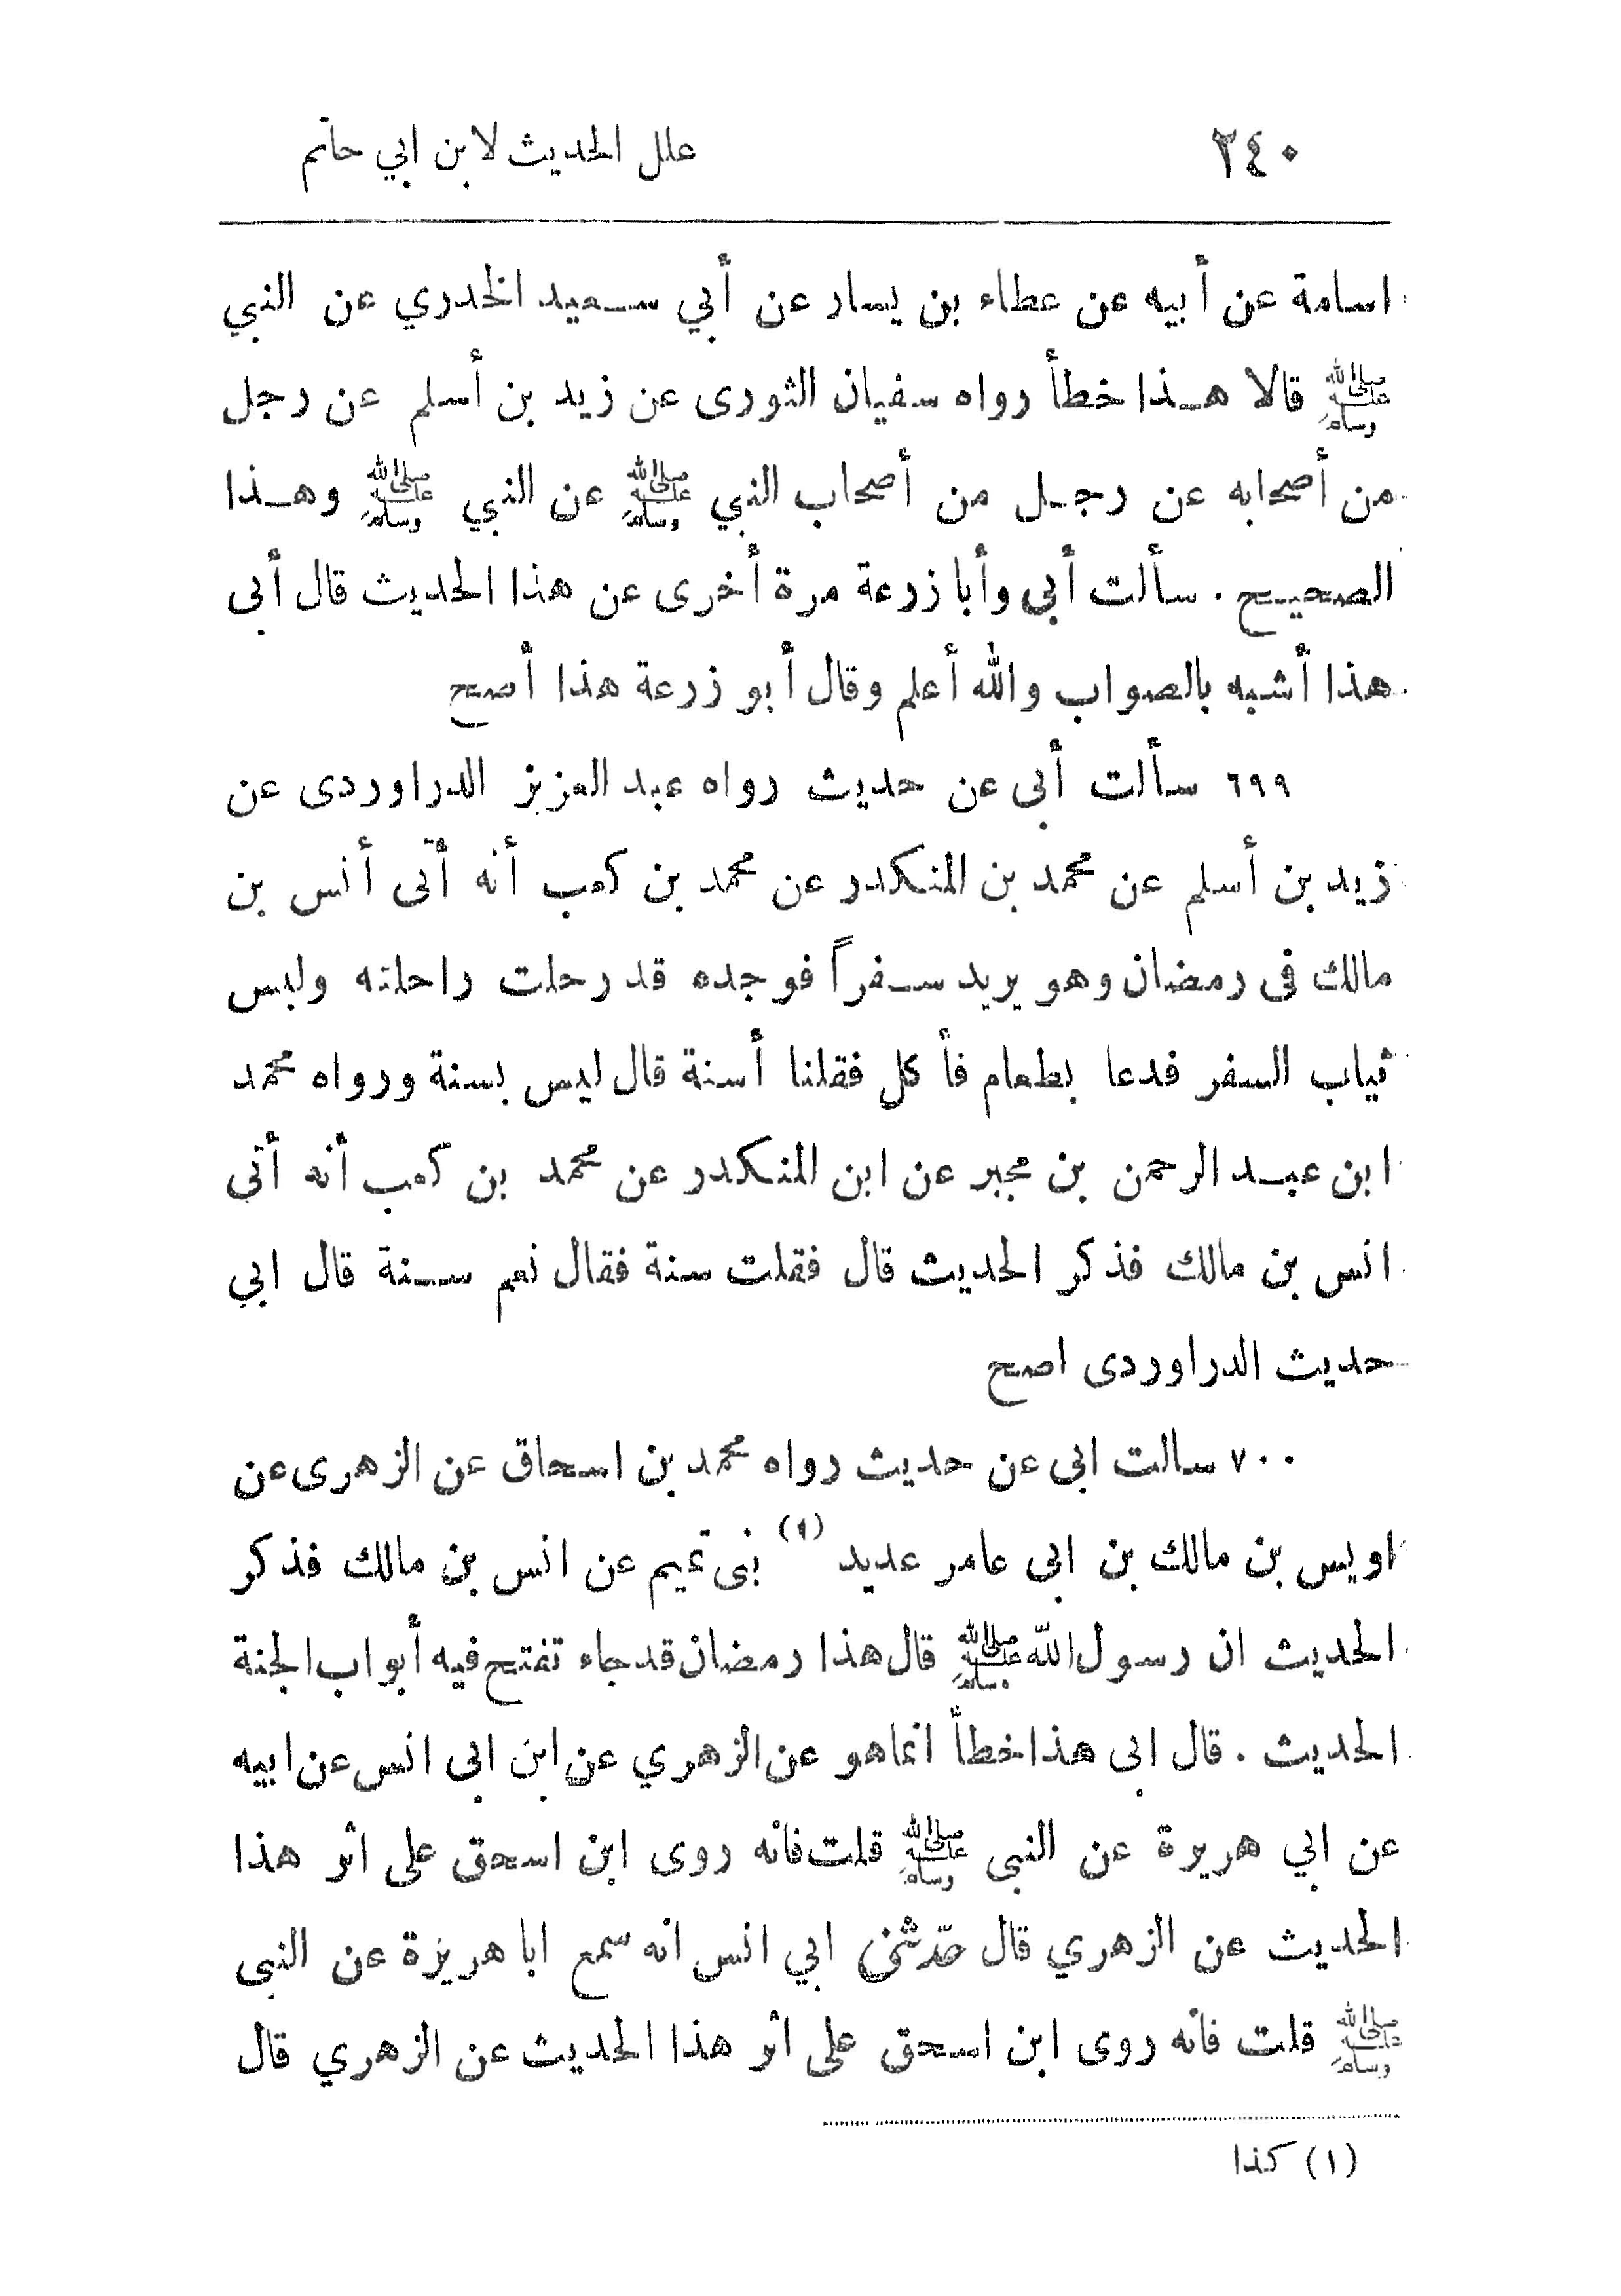 ٢٤٠ علل الحديث لابن ابي حاتم
اسامة عن أبيه عن عطاء بن يسار عن أبي سعيد الخدري عن النبي
ﷺ قالا هذا خطأ رواه سفيان الثورى عن زيد بن أسلم عن رجل
من أصحابه عن رجل من أصحاب النبي ﷺ عن النبي ﷺ وهذا
الصحيح . سألت أبي وأبا زرعة مرة أخرى عن هذا الحديث قال أبى
هذا أشبه بالصواب والله أعلم وقال أبو زرعة هذا أصح
٦٩٩ سألت أبى عن حديث رواه عبد العزيز الدراوردى عن
زيد بن أسلم عن محمد بن المنكدر عن محمد بن كعب أنه أتى أنس بن
مالك فى رمضان وهو يريد سفراً فوجده قد رحلت راحلته ولبس
ثياب السفر فدعا بطعام فأكل فقلنا أسنة قال ليس بسنة ورواه محمد
ابن عبد الرحمن بن مجبر عن ابن المنكدر عن محمد بن كعب أنه أتى
انس بن مالك فذكر الحديث قال فقلت سنة فقال نعم سنة قال ابي
حديث الدراوردى اصح
٧٠٠ سالت ابى عن حديث رواه محمد بن اسحاق عن الزهرى عن
اويس بن مالك بن ابى عامر عديد (١) بنى تميم عن انس بن مالك فذكر
الحديث ان رسول الله ﷺ قال هذا رمضان قد جاء تفتح فيه أبواب الجنة
الحديث . قال ابى هذا خطأ انماهو عن الزهري عن ابن ابى انس عن ابيه
عن ابي هريرة عن النبى ﷺ قلت فانه روى ابن اسحق على اثر هذا
الحديث عن الزهري قال حدثنى ابي انس انه سمع ابا هريرة عن النبى
ﷺ قلت فانه روى ابن اسحق على اثر هذا الحديث عن الزهري قال
(١) كذا